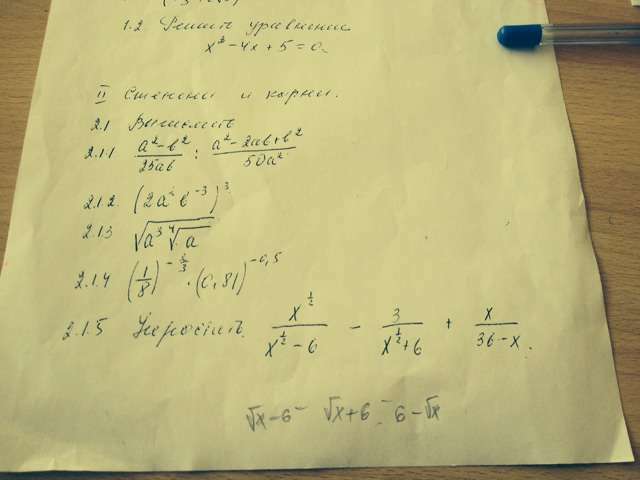 1.2 Решить уравнение
x² - 4x + 5 = 0.
II Степени и корни.
2.1 Вычислить
2.1.1 (a² - b²)/(25ab) : (a² - 2ab + b²)/(50a²)
2.1.2. (2a² b⁻³)³
2.1.3 √(a³ ∜a)
2.1.4 (1/8)^(-5/3) · (0,81)^(-0,5)
2.1.5 Упростить. x^(1/2)/(x^(1/2) - 6) - 3/(x^(1/2) + 6) + x/(36 - x).
√x - 6 - √x + 6 = 6 - √x